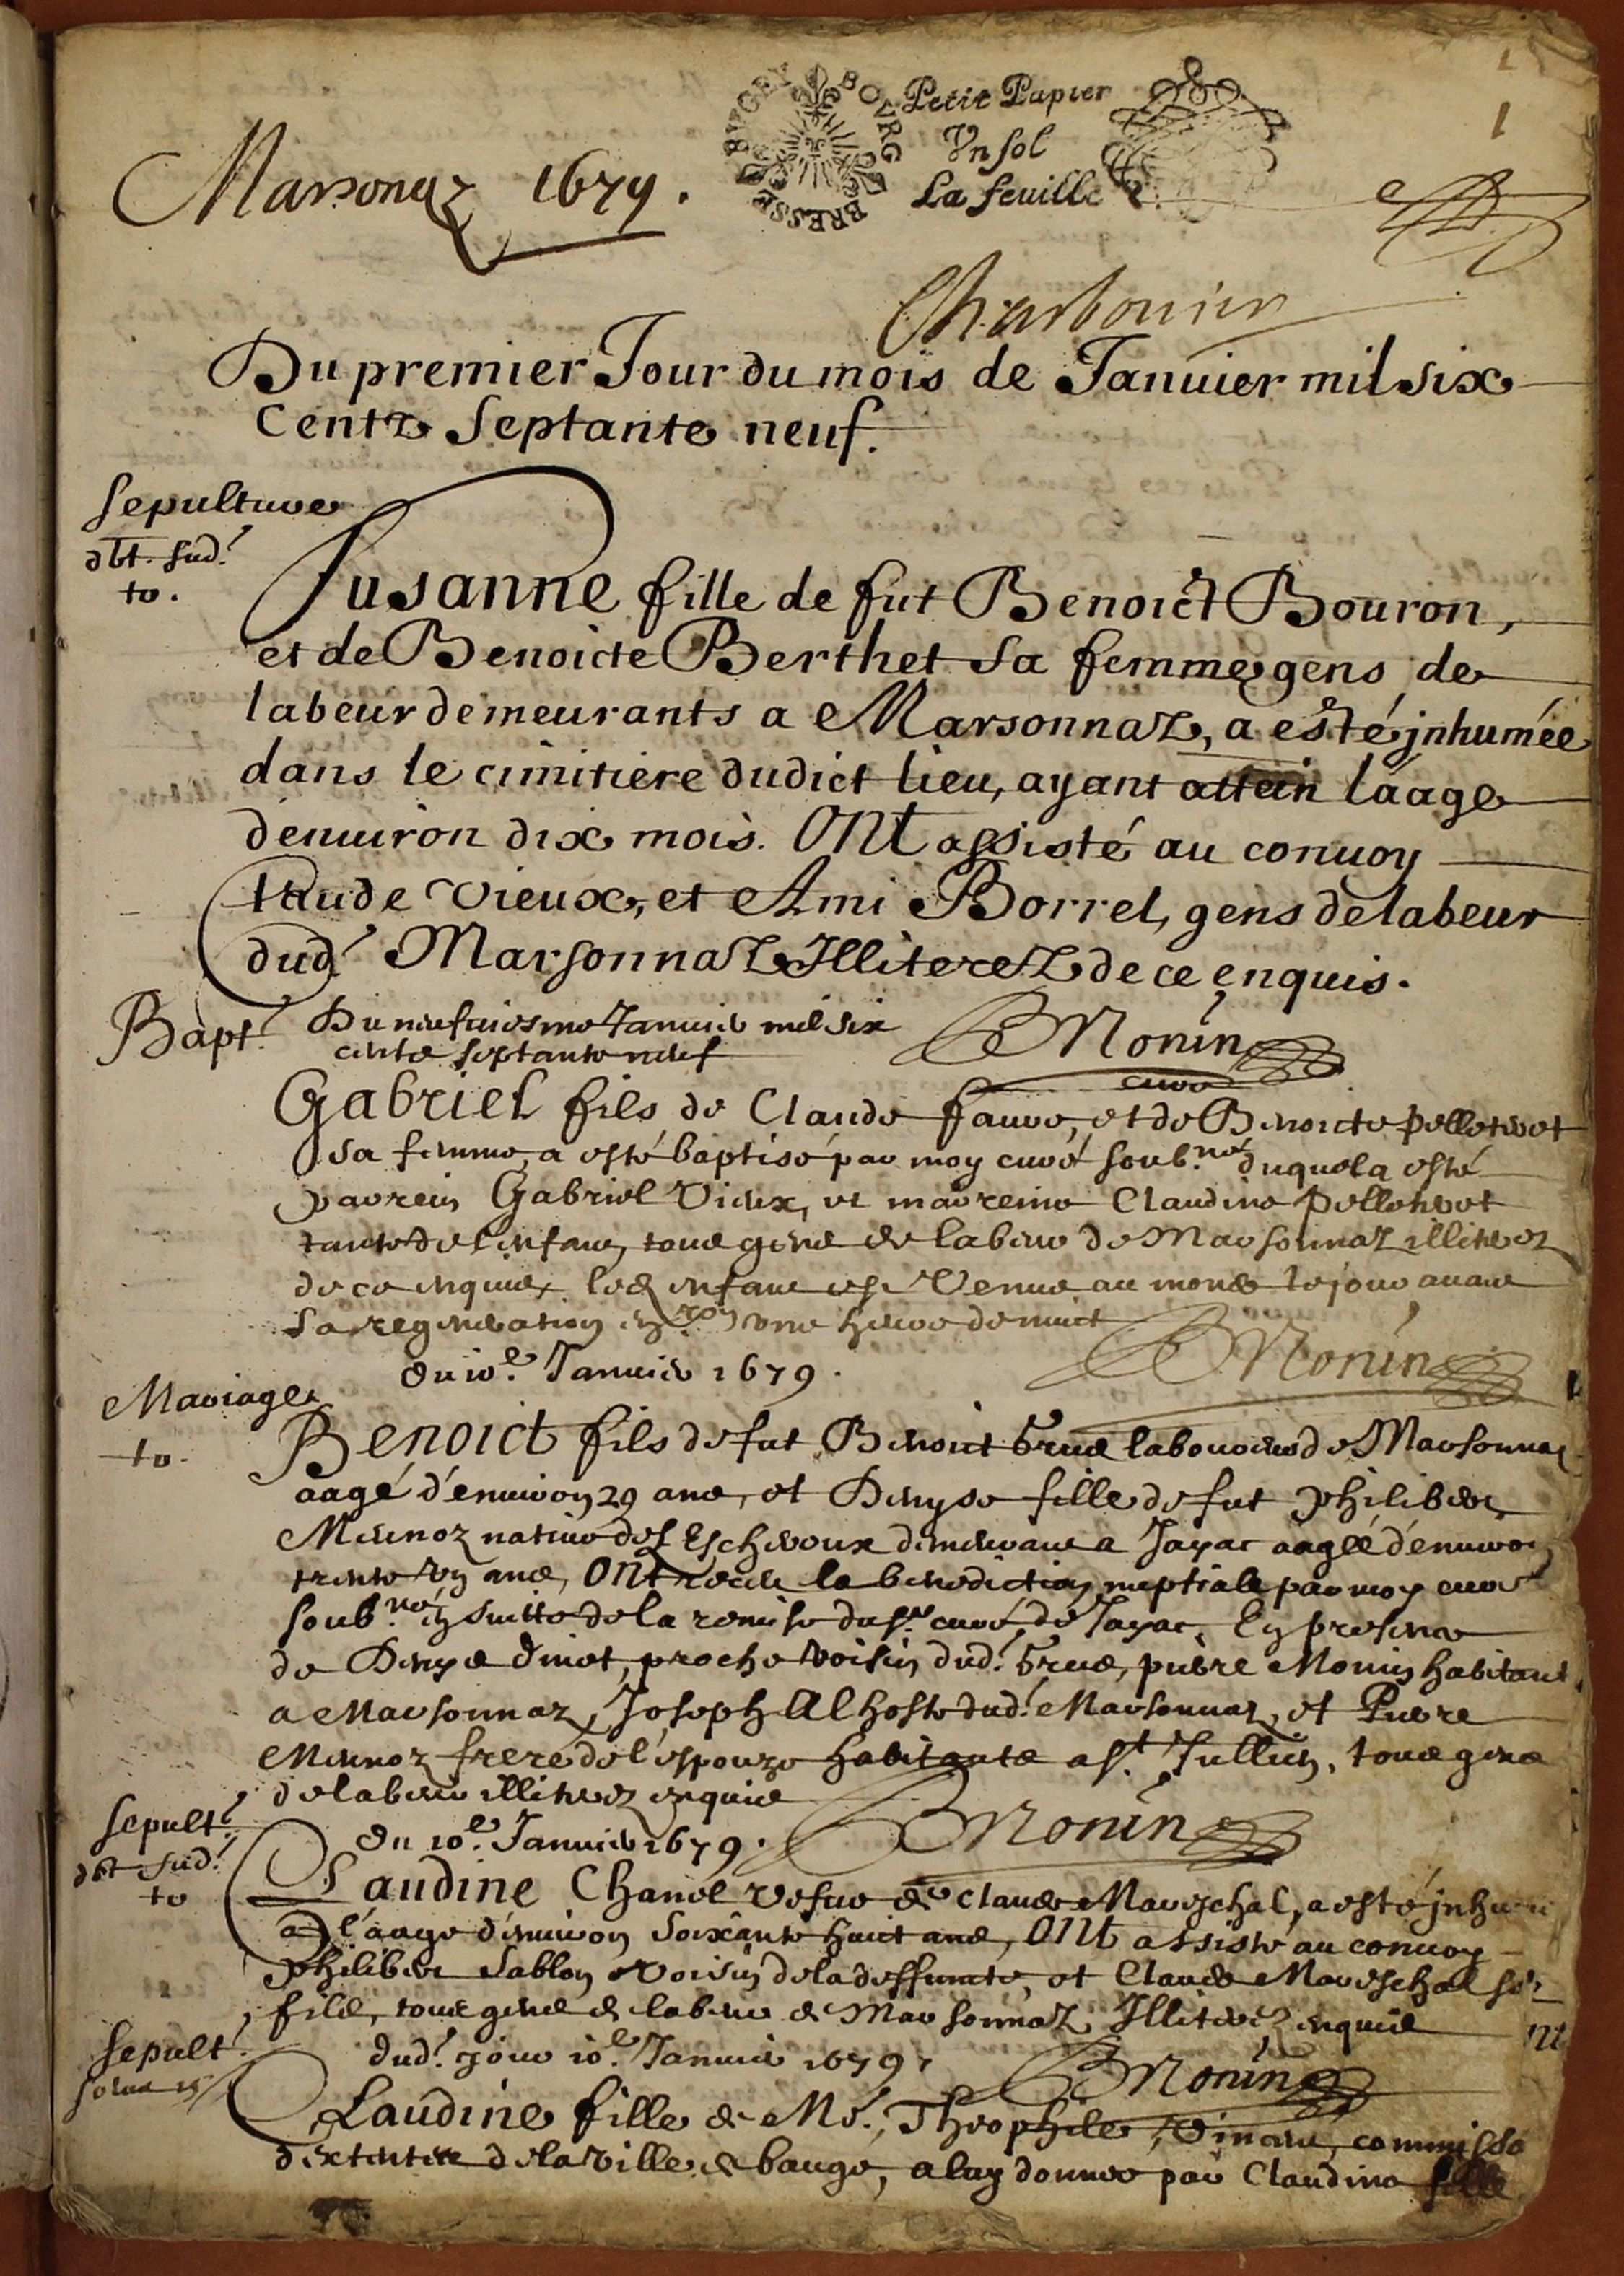 1
1
BVGEY BOVRG BRESSE
Petit Papier
Vn sol
La feuille
Marsonaz 1679.
Charbonier
Du premier Jour du mois de Januier mil six
Centz Septante neuf.
Sepulture
dbt. sud.
to.
Susanne fille de fut Benoict Bouron,
et de Benoicte Berthet sa femme, gens de
labeur demeurants a Marsonnaz, a esté jnhumée
dans le cimitiere dudict lieu, ayant attein láage
dénuiron dix mois. Ont assisté au conuoy
Claude Vieux, et Ami Borrel, gens de labeur
dud. Marsonnaz Illiterez de ce enquis.
BMonin
curé
Bapt.
Du neufuiesme Januier mil six
centz septante neuf
Gabriel fils de Claude faure, et de Benoicte Pelleteret
sa femme, a esté baptisé par moy curé soub.né duquel a esté
parrein Gabriel Vieux, et marreine Claudine Pelleteret
tante de l'enfant, tous gens de labeur de Marsonnaz illiterez
de ce enquis, led. enfant est Venu au monde le jour auant
sa regeneration une heure de nuict
BMonin
Mariage
to.
du 10e. Januier 1679.
Benoict fils de fut Benoict laboureur de Marsonnaz
aagé d'enuiron 29 ans, et Denyse fille de fut Philibert
natiue des Escheroux demeurant a Jayac aagée d'enuiron
trente un ans, Ont receu la benediction nuptiale par moy curé
soub.né en suitte de la remise du sr. curé de Jayac, En presence
de Denys proche voisin dud. pierre Monin habitant
a Marsonnaz, Joseph dud. Marsonnaz, et Pierre
frere de l'espouze habitants a St. Jullien, tous gens
de labeur illiterez enquis
BMonin
Sepult.
dbt sud.
to
du 10e. Januier 1679.
Claudine Chanel Vefue de Claude Mareschal, a esté jnhumée
a l'aage d'enuiron soixante huict ans, Ont assisté au conuoy
Philibert Sablon Voisin de la deffuncte, et Claude Mareschal son
fils, tous gens de labeur de Marsonnaz Illiterez enquis
BMonin
Sepult.
dud. jour 10e. Januier 1679,
Claudine fille de Me. Theophile Vincent, commissé
d'extentes de la Ville de baugé, a luy donnée par Claudine fille